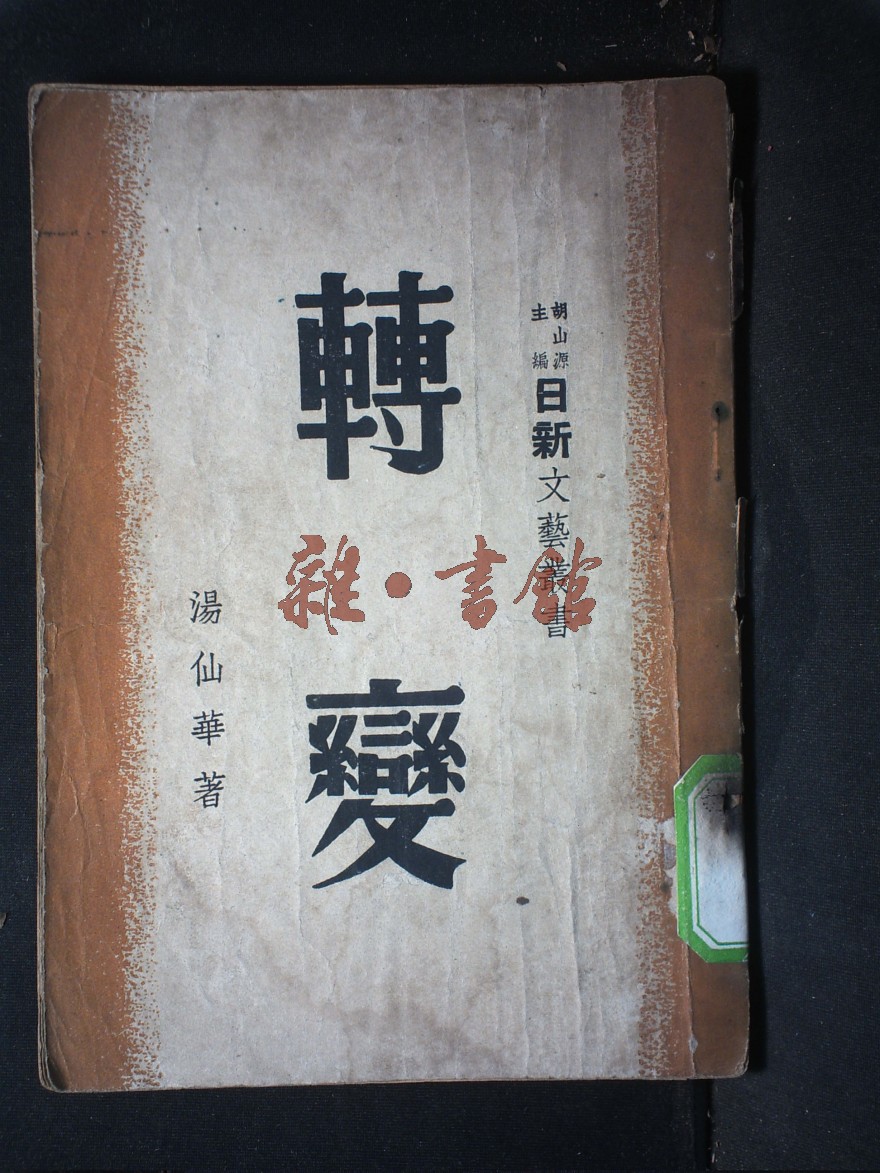 胡山源
主編
日新文藝叢書
轉變
湯仙華著
雜·書館